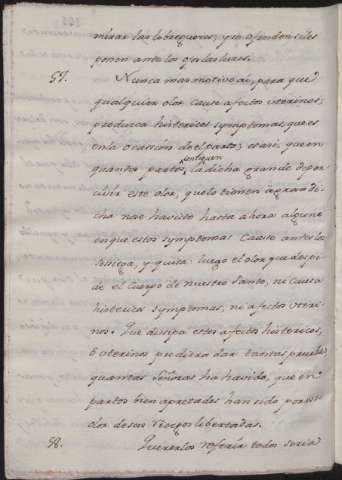 mirar las lobregueces, y se ofenden si les
ponen ante los ojos las luces.
57. Nunca mas motivo ai, para que
qualquier olor cause afectos uterinos,
produzca histericos symptomas, que es
en la ocasion de el parto; es assi, que en
quantos partos, la dicha grande de per-
civir este olor, que lo tienen a gran di-
cha nos havisto hasta ahora alguno
en que estos symptomas cause antes los
sossiega, y quita: luego el olor que despi-
de el Cuerpo de nuestro Santo, ni causa
histericos symptomas, ni afectos uteri-
nos. Que disipa estos afectos histericos,
ó uterinos pudiera dar tantas pruebas
quantas Señoras ha havido, que en
partos bien apretados han sido por este
olor de sus riesgos libertadas.
58. Quererlos referir todos seria